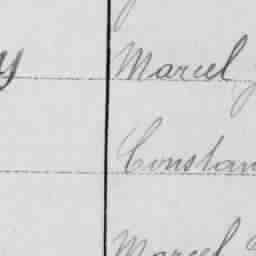 y Marcel
Constan
Marcel